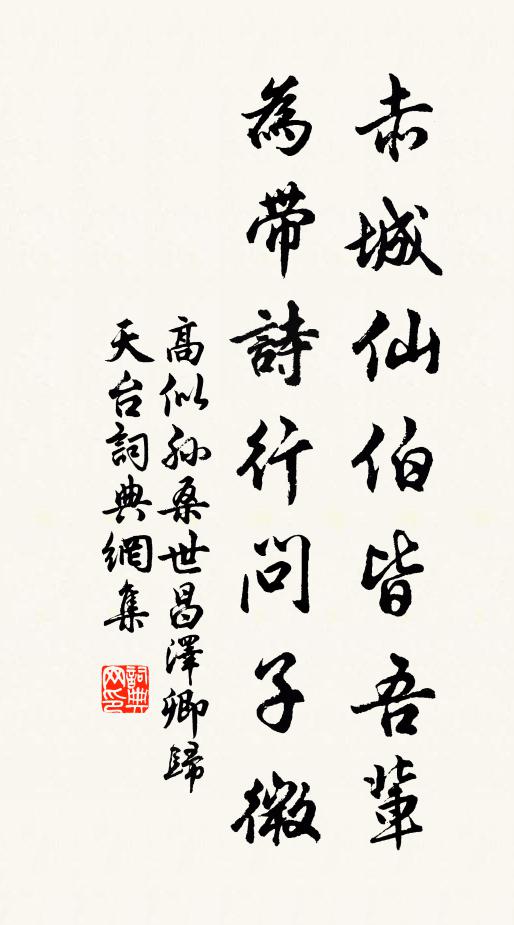 赤城仙伯皆吾輩
為帶詩行問子微
高似孫桑世昌澤卿歸
天台詞典網集
詞典
网印